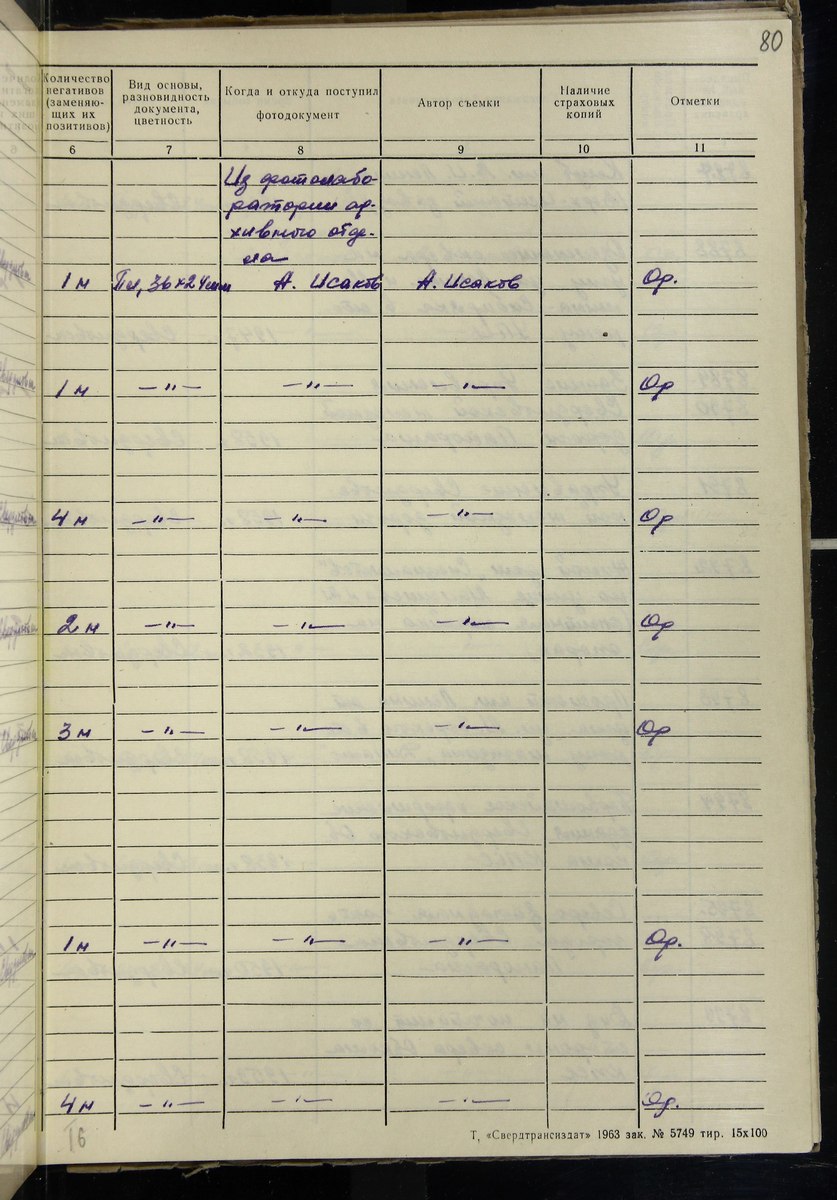 80
Количество негативов (заменяю- щих их позитивов) Вид основы, разновидность документа, цветность Когда и откуда поступил фотодокумент Автор съемки Наличие страховых копий Отметки
6 7 8 9 10 11
Из фотолабо-
ратории ар-
хивного отде-
ла
1 н Пл, 36×24мм А. Исаков А. Исаков Ор.
1 н —"— —"— —"— Ор
4 н —"— —"— —"— Ор
2 н —"— —"— —"— Ор
3 н —"— —"— —"— Ор
1 н —"— —"— —"— Ор.
4 н —"— —"— —"— Ор.
16
Т. «Свердтрансиздат» 1963 зак. № 5749 тир. 15х100